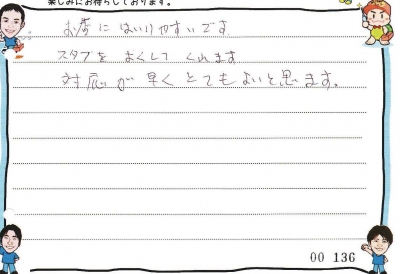 楽しみにお待ちしております。
お店にはいりやすいです
スタフをよくしてくれます
対応が早くとてもよいと思います。
00 136